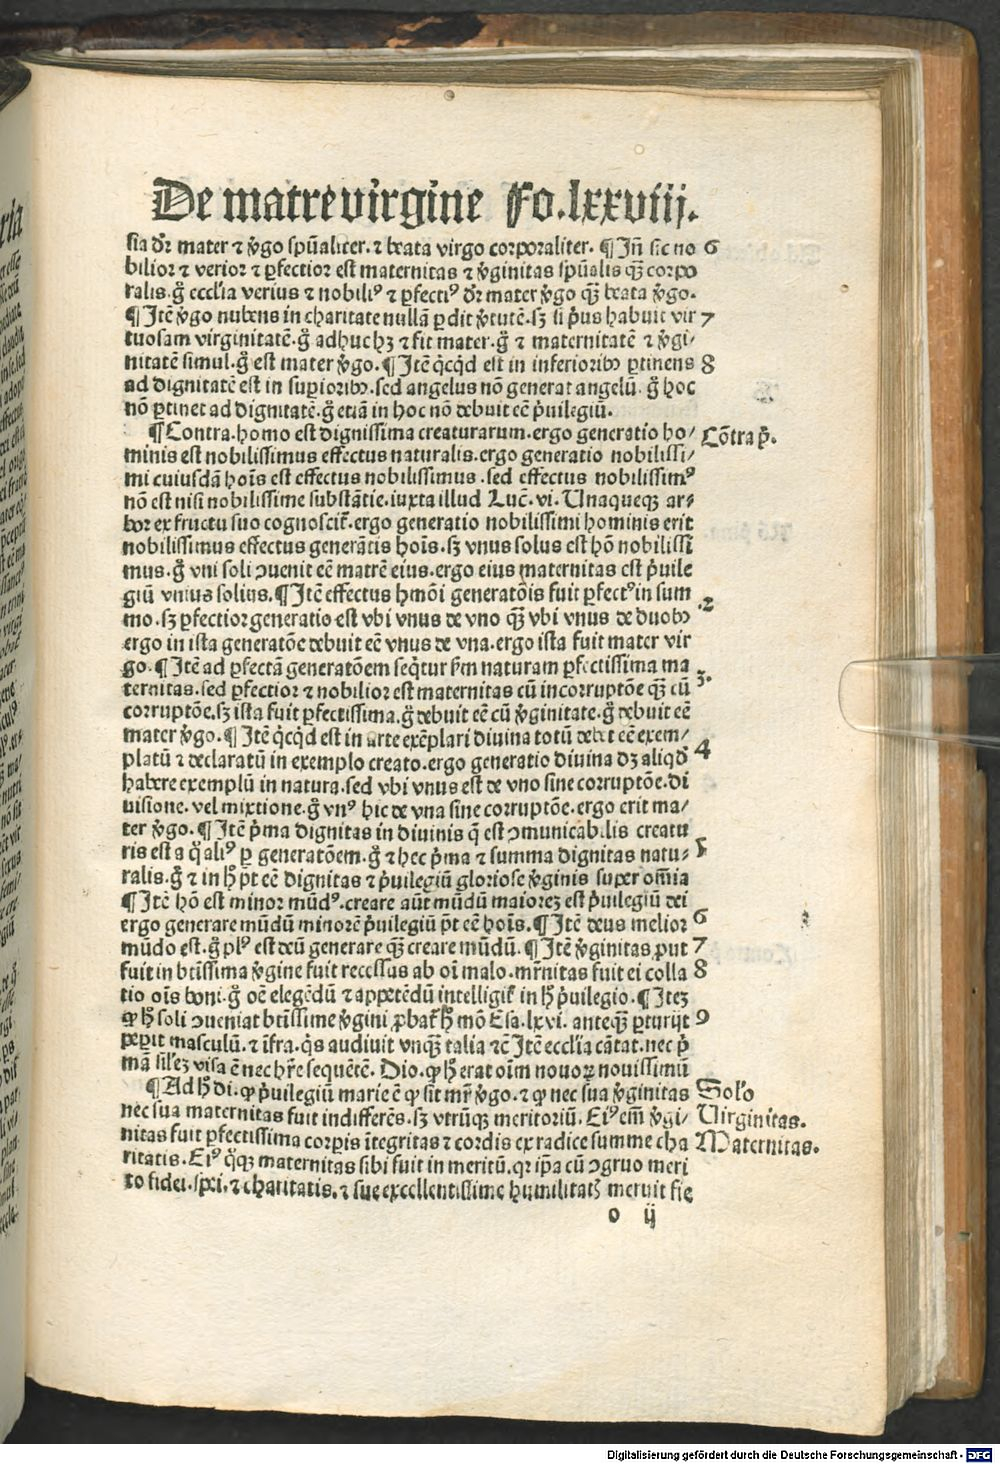 De matre virgine Fo.lxxviij.
sia dr̄ mater ⁊ v̾go spūaliter. ⁊ beata virgo corporaliter. ¶ Jn̄ sic no 6
bilior ⁊ verior ⁊ ꝑfectior est maternitas ⁊ v̾ginitas spūalis qƺ̄ corpo
ralis. g̊ eccl'ia verius ⁊ nobiliꝰ ⁊ ꝑfectiꝰ dr̄ mater v̾go qƺ̄ beata v̾go.
¶ Jtē v̾go nubens in charitate nullā ꝑdit v̾tutē. sƺ si p̄us habuit vir 7
tuosam virginitatē. g̊ adhuc hƺ ⁊ fit mater. g̊ ⁊ maternitatē ⁊ v̾gi/
nitatē simul. g̊ est mater v̾go. ¶ Jtē q̇cqd̄ est in inferioribꝰ ꝑtinens 8
ad dignitatē est in suꝑioribꝰ. sed angelus nō generat angelū. g̊ hoc
nō ꝑtinet ad dignitatē. g̊ etiā in hoc nō debuit eē p̄uilegiū.
¶ Contra. homo est dignissima creaturarum. ergo generatio ho/ Cōtra p̄.
minis est nobilissimus effectus naturalis. ergo generatio nobilissi/
mi cuiusdā hoīs est effectus nobilissimus. sed effectus nobilissimꝰ
nō est nisi nobilissime substātie. iuxta illud Luc̄. vi. Unaqueqƺ ar/
bor ex fructu suo cognoscit᷑. ergo generatio nobilissimi hominis erit
nobilissimus effectus generātis hoīs. sƺ vnus solus est hō nobilissi
mus. g̊ vni soli ꝯuenit eē matrē eius. ergo eius maternitas est p̄uile
giū vnius solius. ¶ Jtē effectus hmōi generatōis fuit ꝑfectꝰ in sum .2
mo. sƺ ꝑfectior generatio est vbi vnus de vno qƺ̄ vbi vnus de duobꝰ
ergo in ista generatōe debuit eē vnus de vna. ergo ista fuit mater vir
go. ¶ Jtē ad ꝑfectā generatōem seq̇tur ẜm naturam ꝑfectissima ma 3.
ternitas. sed ꝑfectior ⁊ nobilior est maternitas cū incorruptōe qƺ̄ cū
corruptōe. sƺ ista fuit ꝑfectissima. g̊ debuit eē cū v̾ginitate. g̊ debuit eē
mater v̾go. ¶ Jtē q̇cqd̄ est in arte exēplari diuina totū debet eē exem/ 4
platū ⁊ declaratū in exemplo creato. ergo generatio diuina dƺ aliqd̄
habere exemplū in natura. sed vbi vnus est de vno sine corruptōe. di
uisione. vel mixtione. g̊ vnꝰ hic de vna sine corruptōe. ergo erit ma/
ter v̾go. ¶ Jtē p̄ma dignitas in diuinis q̄ est ꝯmunicabilis creatu
ris est a q̊ aliꝰ ꝑ generatōem. g̊ ⁊ hec p̄ma ⁊ summa dignitas natu/ 5
ralis. g̊ ⁊ in h̊ p̄t eē dignitas ⁊ p̄uilegiū gloriose v̾ginis super om̄ia
¶ Jtē hō est minor mūdꝰ. creare aūt mūdū maiorez est p̄uilegiū dei
ergo generare mūdū minorē p̄uilegiū p̄t eē hoīs. ¶ Jtē deus melior 6
mūdo est. g̊ plꝰ est deū generare qƺ̄ creare mūdū. ¶ Jtē v̾ginitas ꝓut 7
fuit in btīssima v̾gine fuit recessus ab oī malo. mr̄nitas fuit ei colla 8
tio oīs boni. g̊ oē elegēdū ⁊ appetēdū intelligit᷑ in h̊ p̄uilegio. ¶ Jtez
ꝙ h̊ soli ꝯueniat btīssime v̾gini ꝓbat᷑ h̊ mō Esa. lxvi. anteqƺ̄ ꝑturijt 9
peꝑit masculū. ⁊ īfra. q̇s audiuit vnqƺ̄ talia ⁊c̄ Jtē eccl'ia cātat. nec p̄
mā sil'ez visa ē nec hr̄e sequētē. Dio. ꝙ h̊ erat oīm nouoꝝ nouissimū
¶ Ad h̊ di. ꝙ p̄uilegiū marie ē ꝙ sit mr̄ v̾go. ⁊ ꝙ nec sua v̾ginitas Solo
nec sua maternitas fuit indifferēs. sƺ vtrūqƺ meritoriū. Eiꝰ em̄ v̾gi/ Virginitas.
nitas fuit ꝑfectissima corꝑis ītegritas ⁊ cordis ex radice summe cha Maternitas.
ritatis. Eiꝰ q̊qƺ maternitas sibi fuit in meritū. qꝛ ip̄a cū ꝯgruo meri
to fidei. spei. ⁊ charitatis. ⁊ sue excellentissime humilitatꝭ meruit fie
o ij
Digitalisierung gefördert durch die Deutsche Forschungsgemeinschaft - DFG